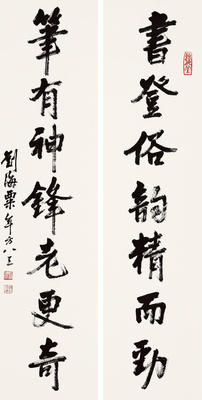 書登俗韵精而勁
筆有神鋒老更奇
劉海粟年方八三